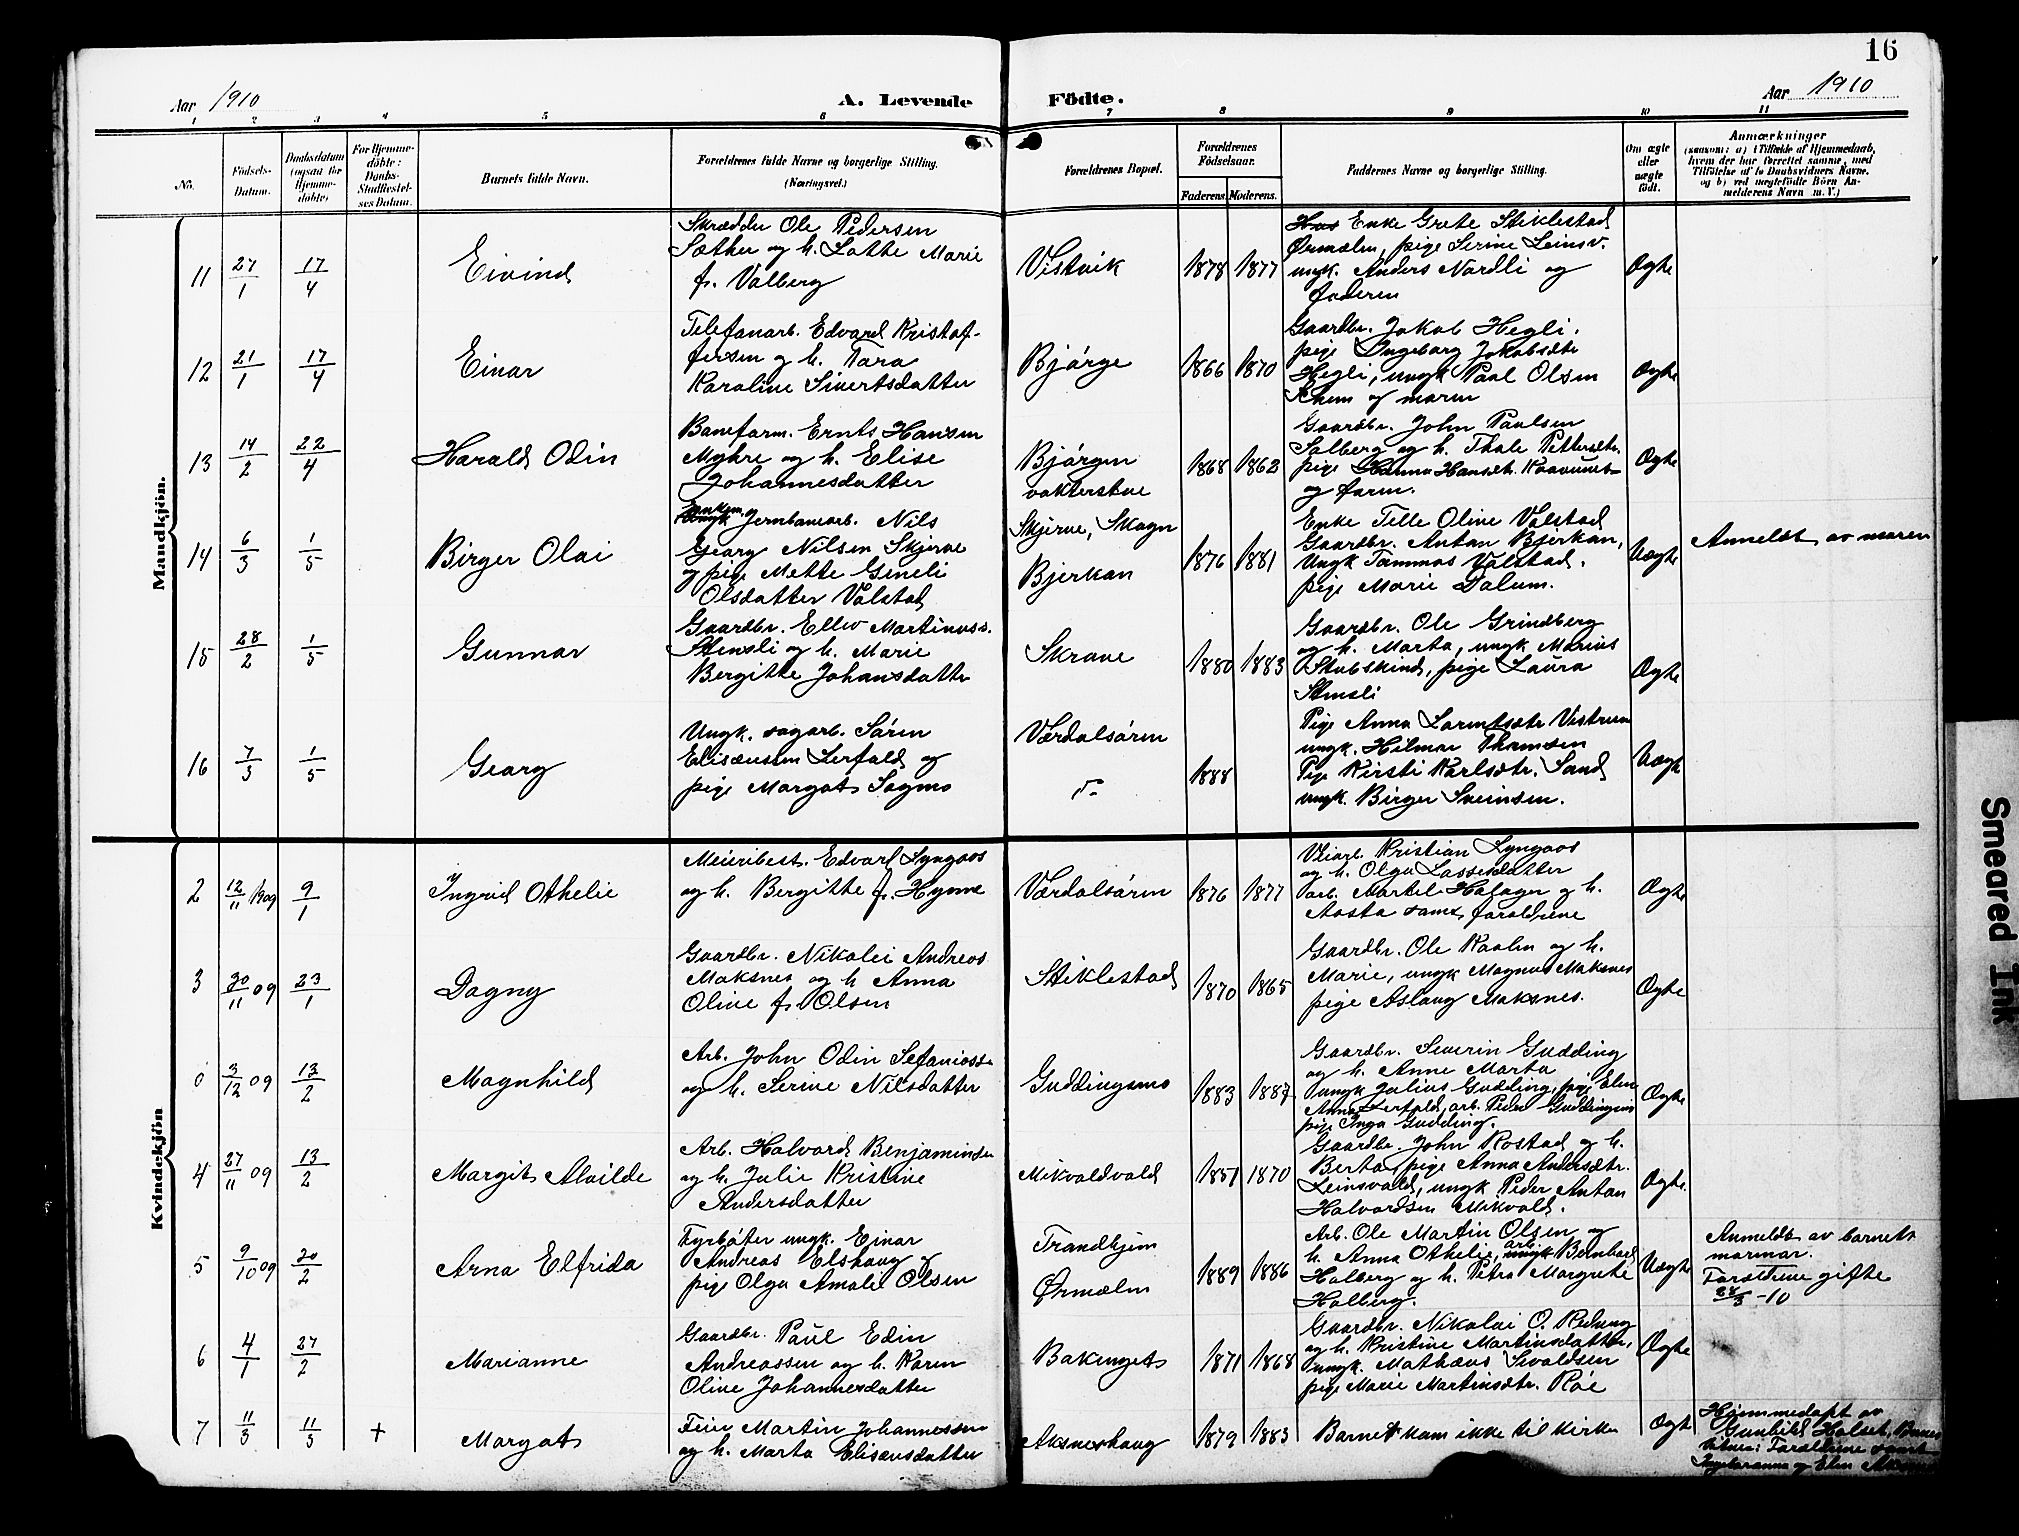 16
Aar 1910
A. Levende Födte.
Aar 1910
1 2 3 4 5 6 7 8 9 10 11
No.
Födsels-
Datum.
Daabsdatum
(ogsaa for
Hjemme-
döbte)
For Hjemme-
döbte:
Daabs-
Stadfæstel-
ses Datum.
Barnets fulde Navn.
Forældrenes fulde Navne og borgerlige Stilling.
(Næringsvei.)
Forældrenes Bopæl.
Forældrenes
Födselsaar.
Faderens. Moderens.
Faddernes Navne og borgerlige Stilling.
Om ægte
eller
uægte
født.
Anmærkninger
(saasom: a) (Tilfælde af Hjemmedaab,
hvem der har forrettet samme, med
Tilføielse af to Daabsvidners Navne,
og b) ved uægtefödte Börn An-
melderens Navn m. V.)
Mandkjön.
11
27/1
17/4
Eivind
Skrædder Ole Pedersen
Sæther og h. Lotte Marie
f. Valberg
Vistvik
1878 1877
Enke Grete Stiklestad
Ørmælen, pige Serine Leinsv.
ungk. Anders Nordli og
faderen
Ægte
12
21/1
17/4
Einar
Telefonarb. Edvard Kristof-
fersen og h. Tora
Karoline Sivertsdatter
Bjørge
1866 1870
Gaardbr. Jakob Hegli.
pige Ingeborg Jakobsdtr
Hegli, ungk Paal Olsen
Rhem og moren
Ægte
13
14/2
22/4
Harald Odin
Baneform. Ernts Hansen
Myhre og h. Elise
Johannesdatter
Bjørgen
vokterstue
1868 1862
Gaardbr. John Paulsen
Salberg og h. Thale Pettersdtr.
pige Hanna Hansdt.
og faren.
Ægte
14
6/3
1/5
Birger Olai
Enkem. og Jernbanearb. Nils
Georg Nilsen Skjerve
og pige Mette Gineli
Olsdatter Valstad
Skjerve, Skogn
Bjerkan
1876 1881
Enke Tille Oline Valstad
Gaardbr. Antan Bjerkan,
Ungk Tommas Valstad.
pige Marie Dalum.
Uægte
Anmeldt av moren
15
28/2
1/5
Gunnar
Gaardbr. Ellev Martinuss.
Stensli og h. Marie
Bergitte Johansdatter
Skrove
1880 1883
Gaardbr. Ole Grindberg
og h. Marta, ungk Marius
Stubskind, pige Laura
Stensli
Ægte
16
7/3
1/5
Georg
Ungk. sagarb. Søren
Eliseussen Lerfald og
pige Margot Sagmo
Værdalsøren
1888
Pige Anna Larentsdtr Vistrum
ungk. Hilmar Thomsen
Pige Kirsti Karlsdtr. Sand
ungk. Birger Sveinsen.
Uægt
Kvindekjön
2
12/11 1909
9/1
Ingrid Othelie
Meieribest. Edvard Lyngaas
og h. Bergitte f. Hynne
Værdalsøren
1876 1877
Kristian Lyngaas
og h. Olga Lassesdatter
arb. Martel Halager og h.
Aasta samt forældrene
Ægte
3
30/11 09
23/1
Dagny
Gaardbr. Nikolai Andreas
Maksnes og h Anna
Oline f. Olsen
Stiklestad
1870 1865
Gaardbr. Ole Kaalen og h.
Marie, ungk Magnus Maksnes
pige Aslaug Maksnes.
Ægte
0
3/12 09
13/2
Magnhild
Arb. John Odin Sefaniass.
og h. Serine Nilsdatter
Guddingsmo
1883 1887
Gaardbr. Severin Gudding
og h. Anne Marta
ungk Julius Gudding, pige Elen
Anna Lerfald, arb. Peder Guddingsmo
pige Inga Gudding.
Ægte
4
27/11 09
13/2
Margit Alvilde
Arb. Halvard Benjaminsen
og h. Julie Kristine
Andersdatter
Mikvoldvald
1851 1870
Gaardbr. John Rostad og h.
Berta, pige Anna Andersdtr.
Leinsvald, ungk Peder Antan
Halvardsen Mikvold.
Ægte.
5
9/10 09
20/2
Arna Elfrida
Fyrbøter ungk. Einar
Andreas Elshaug og
pige Olga Amalie Olsen
Trandhjem
Ørmælen
1889 1886
Arb. Ole Martin Olsen og
h. Anna Othelie, arb. Bernhard
Halberg og h. Petra Margrete
Halberg.
Uægte
Anmeldt av barnets
mormor.
Forældrene gifte
28/3 -10
6
4/1
27/2
Marianne
Gaardbr. Paul Edin
Andreassen og h. Karen
Oline Johannesdatter
Bakinget
1871 1868
Gaardbr. Nikolai O. Reinug
og h. Kristine Martinsdatter,
ungk. Mathæus Sivaldsen
pige Marie Martinsdtr. Røe
Ægte
7
11/3
11/3
+
Margot
Feier Martin Johannessen
og h. Marta Eliseusdatter
Aksneshaug
1879 1883
Barnet kom ikke til kirke
Ægt
Hjemmedøpt av
Gunhild Halset,
Forældrene samt
og Elen
Smeared Ink